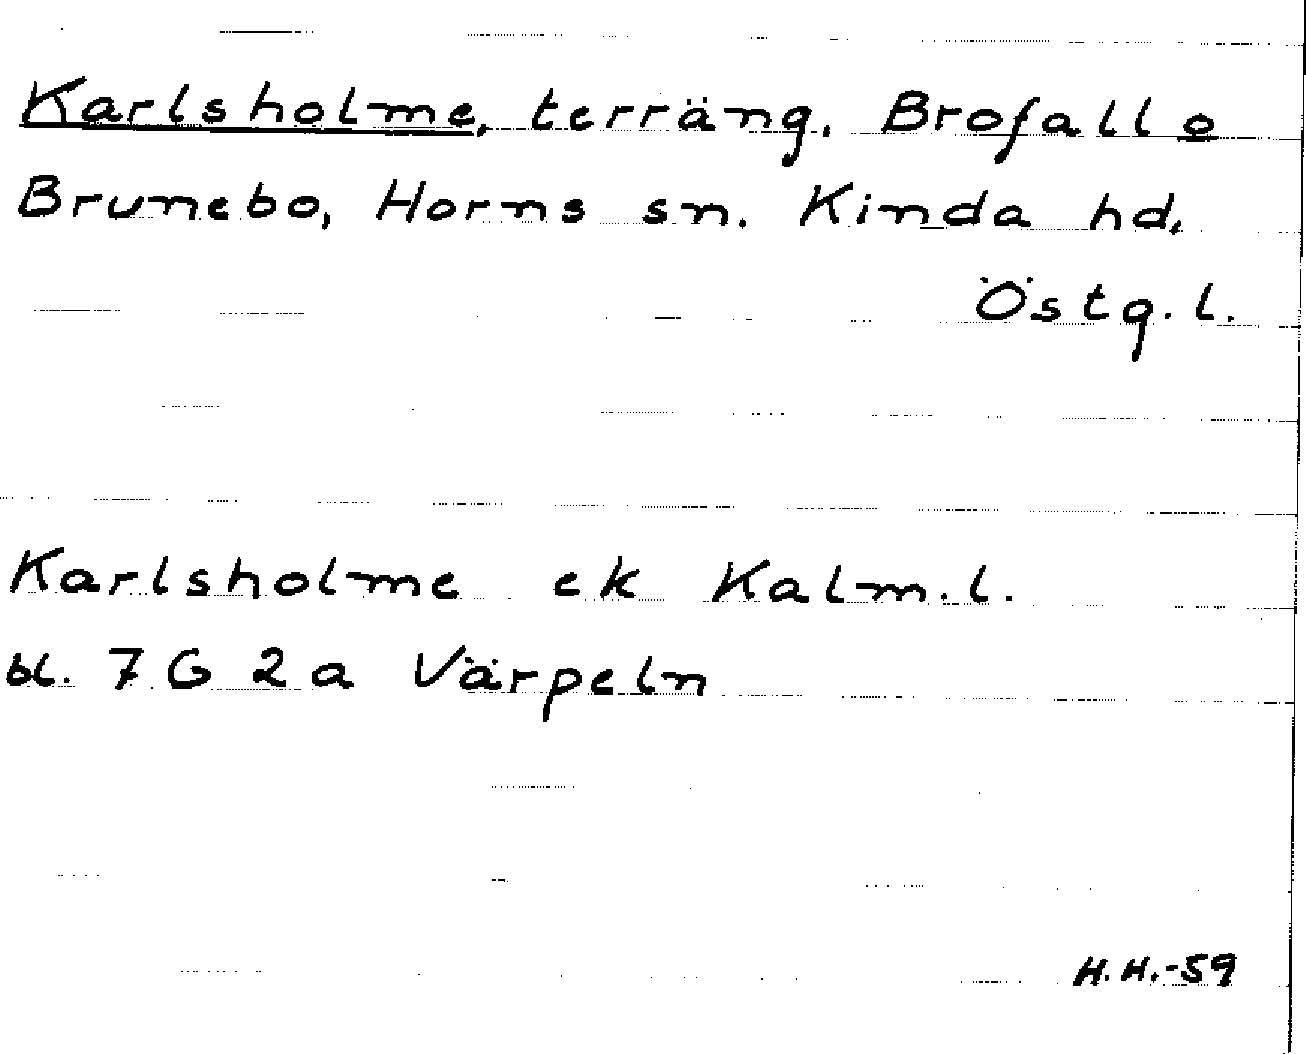 Karlsholme, terräng, Brofall o
Brunebo, Horns sn. Kinda hd,
Östg. l.
Karlsholme ek Kalm. l.
bl. 7 G 2 a Värpeln
H. H. -59